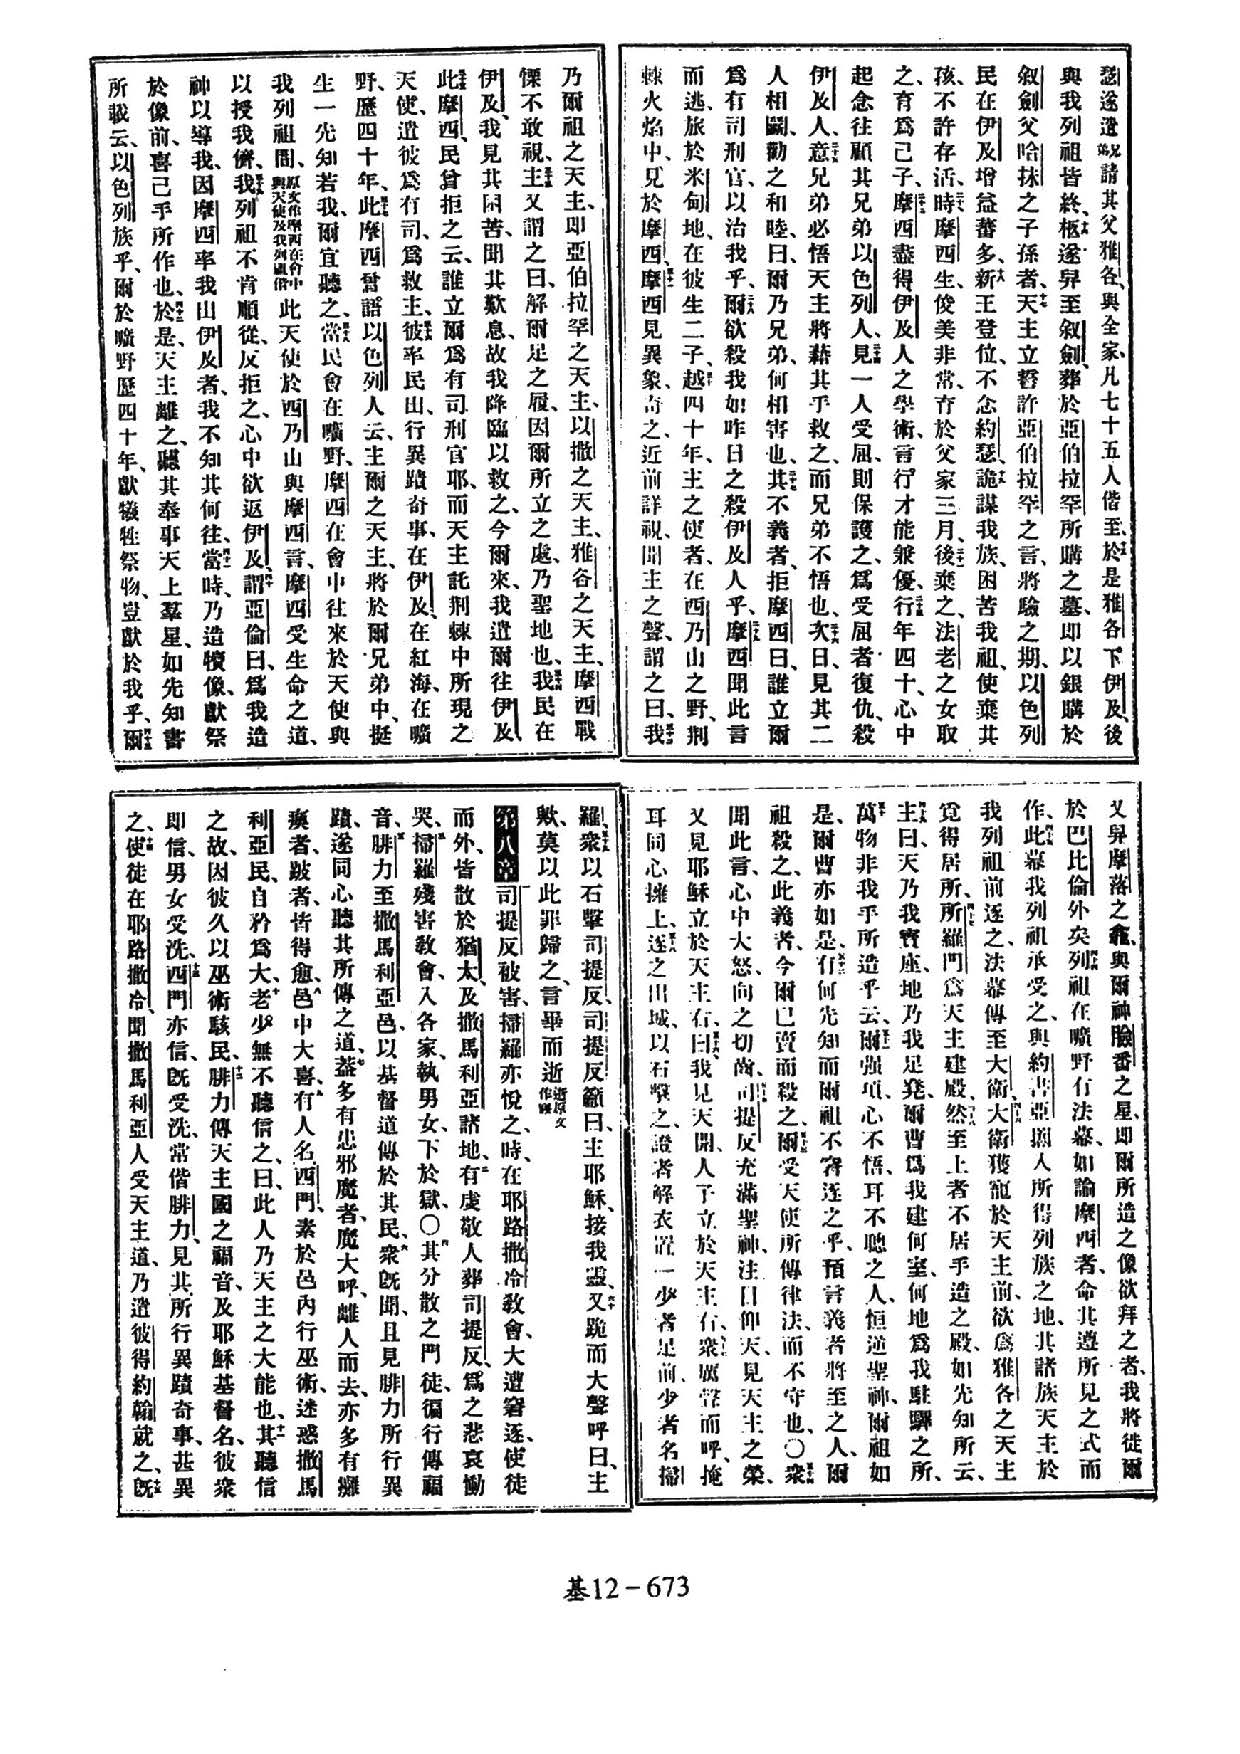 瑟遂遣弟兄請其父雅各、與全家、凡七十五人偕至、於是雅各下伊及、後
與我列祖皆終、柩遂舁至敘劍、葬於亞伯拉罕所購之墓、即以銀購於
敘劍父哈抹之子孫者、天主立誓許亞伯拉罕之言、將驗之期、以色列
民在伊及增益蕃多、新王登位、不念約瑟、詭謀我族、困苦我祖、使棄其
孩、不許存活、時摩西生、俊美非常、育於父家三月、後棄之、法老之女取
之、育爲己子、摩西盡得伊及人之學術、言行才能兼優、行年四十、心中
起念往顧其兄弟以色列人、見一人受屈、則保護之、爲受屈者復仇、殺
伊及人、意兄弟必悟天主將藉其手救之、而兄弟不悟也、次日、見其二
人相鬬、勸之和睦、曰、爾乃兄弟、何相害也、其不義者、拒摩西曰、誰立爾
爲有司刑官、以治我乎、爾欲殺我如昨日之殺伊及人乎、摩西聞此言
而逃、旅於米甸地、在彼生二子、越四十年、主之使者、在西乃山之野、荆
棘火焰中、見於摩西、摩西見異象、奇之、近前詳視、聞主之聲、謂之曰、我
乃爾祖之天主、即亞伯拉罕之天主、以撒之天主、雅各之天主、摩西戰
慄不敢視、主又謂之曰、解爾足之履、因爾所立之處、乃聖地也、我民在
伊及、我見其困苦、聞其歎息、故我降臨以救之、今爾來、我遣爾往伊及
此摩西、民曾拒之云、誰立爾爲有司刑官耶、而天主託荆棘中所現之
天使、遣彼爲有司、爲救主、彼率民出、行異蹟奇事、在伊及、在紅海、在曠
野、歷四十年、此摩西曾語以色列人云、主爾之天主、將於爾兄弟中、挺
生一先知若我、爾宜聽之、當民會在曠野、摩西在會中往來於天使與
我列祖間、原文作摩西在會中與天使及我列祖偕此天使於西乃山與摩西言、摩西受生命之道、
以授我儕、我列祖不肯順從、反拒之、心中欲返伊及、謂亞倫曰、爲我造
神以導我、因摩西率我出伊及者、我不知其何往、當時、乃造犢像、獻祭
於像前、喜己手所作也、於是天主離之、聽其奉事天上羣星、如先知書
所載云、以色列族乎、爾於曠野歷四十年、獻犧牲祭物、豈獻於我乎、爾
又舁摩落之龕、與爾神臉番之星、即爾所造之像欲拜之者、我將徙爾
於巴比倫外矣、列祖在曠野有法幕、如諭摩西者、命其遵所見之式而
作、此幕我列祖承受之、與約書亞携入所得列族之地、其諸族天主於
我列祖前逐之、法幕傳至大衛、大衛獲寵於天主前、欲爲雅各之天主
覓得居所、所羅門爲天主建殿、然至上者不居手造之殿、如先知所云、
主曰、天乃我寶座、地乃我足凳、爾曹爲我建何室、何地爲我駐驆之所、
萬物非我手所造乎云、爾强項、心不悟、耳不聰之人、恒逆聖神、爾祖如
是、爾曹亦如是、有何先知而爾祖不窘逐之乎、預言義者將至之人、爾
祖殺之、此義者、今爾已賣而殺之、爾受天使所傳律法、而不守也、〇衆
聞此言、心中大怒、向之切齒、司提反充滿聖神、注目仰天、見天主之榮、
又見耶穌立於天主右、曰、我見天開、人子立於天主右、衆厲聲而呼、掩
耳同心擁上、逐之出城、以石擊之、證者解衣置一少者足前、少者名掃
羅、衆以石擊司提反、司提反籲曰、主耶穌、接我靈、又跪而大聲呼曰、主
歟、莫以此罪歸之、言畢而逝、逝原文作寢
第八章 司提反被害、掃羅亦悅之、時、在耶路撒冷敎會、大遭窘逐、使徒
而外、皆散於猶太、及撒馬利亞諸地、有虔敬人葬司提反、爲之悲哀慟
哭、掃羅殘害敎會、入各家、執男女、下於獄、〇其分散之門徒、徧行傳福
音、腓力至撒馬利亞邑、以基督道傳於其民、衆旣聞、且見腓力所行異
蹟、遂同心聽其所傳之道、蓋多有患邪魔者、魔大呼、離人而去、亦多有癱
瘓者、跛者、皆得愈、邑中大喜、有人名西門、素於邑內行巫術、迷惑撒馬
利亞民、自矜爲大、老少無不聽信之、曰、此人乃天主之大能也、其聽信
之故、因彼久以巫術駭民、腓力傳天主國之福音、及耶穌基督名、彼衆
即信、男女受洗、西門亦信、旣受洗、常偕腓力、見其所行異蹟奇事、甚異
之、使徒在耶路撒冷、聞撒馬利亞人受天主道、乃遣彼得約翰就之、旣
基12－673